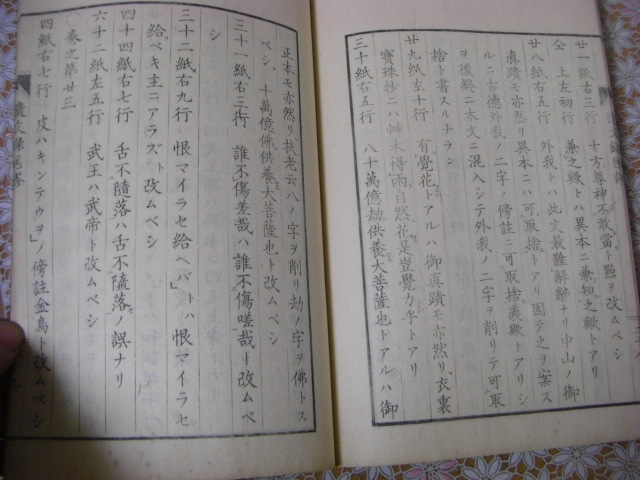 廿一紙右三行 十方尊神不敢當ト點ヲ改ムベシ
仝 上左初行 兼之歟トハ異本ニ兼知之歟トアリ
廿八紙右五行 外我トハ此文最難解ナリ中山ノ御
真蹟モ亦然リ異本ニハ可取捨トアリ因テ之ヲ案ス
ルニ古德外我ノ二字ノ傍註ニ可取捨義歟トアリシ
ヲ後終ニ本文ニ混入シテ外我ノ二字ヲ削リテ可取
捨ト書スルナラン
廿九紙左十行 有覺花トアルハ御真蹟モ亦然リ、衣裏
寶珠抄ニハ艸木得雨自然花是豈覺力乎トアリ
三十紙右五行 八十萬億劫供養大菩薩也トアルハ御
正本モ亦然リ扶老云八ノ字ヲ削リ劫ノ字ヲ佛トス
ベシ、十萬億佛供養大菩薩也ト改ムベシ
三十一紙右三行 誰不傷差哉ハ誰不傷嗟哉ト改ムベ
シ
三十二紙右九行 恨マイラセ給ヘバ」トハ恨マイラセ
給ベキ主ニアラズト改ムベシ
四十四紙右七行 舌不隨落ハ舌不隨落ノ誤ナリ
六十二紙左五行 武王ハ武帝ト改ムベシ
〇卷之第廿三
四紙右七行 皮ハキンテウヲ」ノ傍註金鳥ト改ムベシ